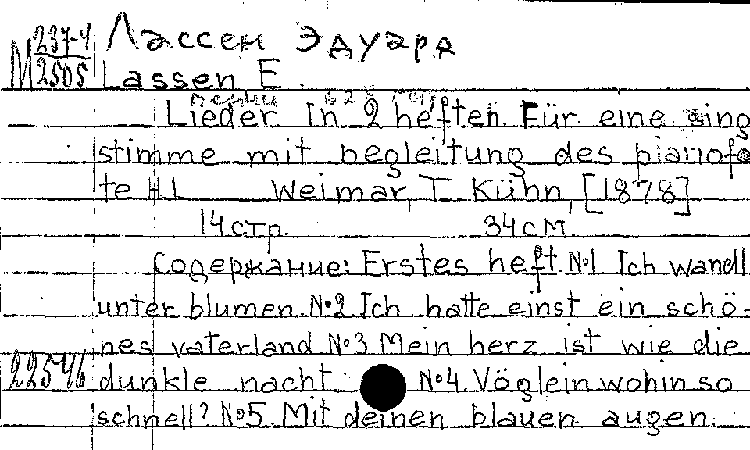 М 237-4 Лассен Эдуард
2505 Lassen E.
Песни
Lieder. In 2 heften. Für eine sing
stimme mit begleitung des pianofo
te H.1 Weimar, T. Kühn, [1878]
14 стр. 34 см.
Содержание: Erstes heft. №1 Ich wandl
unter blumen. №2 Ich hatte einst ein schö-
nes vaterland №3 Mein herz ist wie die
22546 dunkle nacht. №4. Vöglein wohin so
schnell? №5. Mit deinen blauen augen.